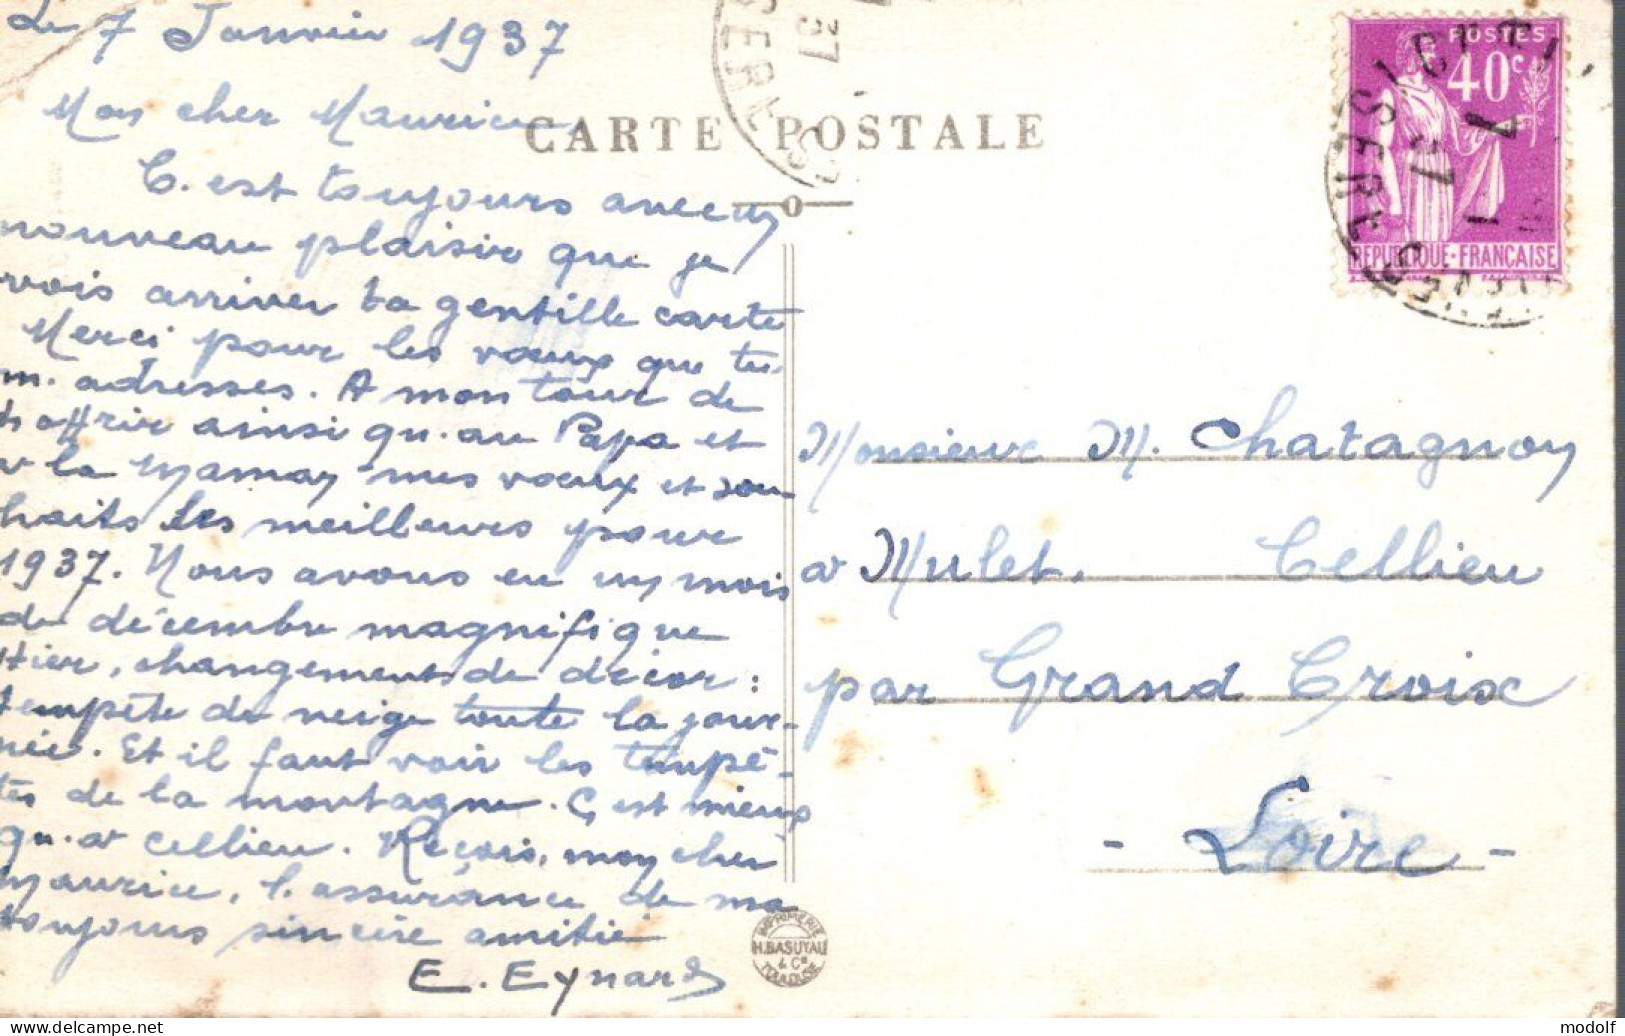 Le 7 Janvier 1937
Mon cher Maurice,
CARTE POSTALE
C'est toujours avec un
nouveau plaisir que je
vois arriver ta gentille carte
Merci pour les vœux que tu
m'adresses. A mon tour de
t'offrir ainsi qu'au Papa et
la Maman mes vœux et sou-
haits les meilleurs pour
1937. Nous avons eu un mois
de décembre magnifique
Hier, changement de décor :
tempête de neige toute la jour-
née. Et il faut voir les tempê-
tes de la montagne. C'est mieux
qu'à Cellieu. Reçois, mon cher
Maurice, l'assurance de ma
toujours sincère amitié
E. Eynard
POSTES
40c
REPUBLIQUE-FRANCAISE
37
Monsieur M. Chatagnon
à Mulet, Cellieu
par Grand Croix
- Loire -
IMPRIMERIE
H. BASUYAU
& Cie
TOULOUSE
modolf